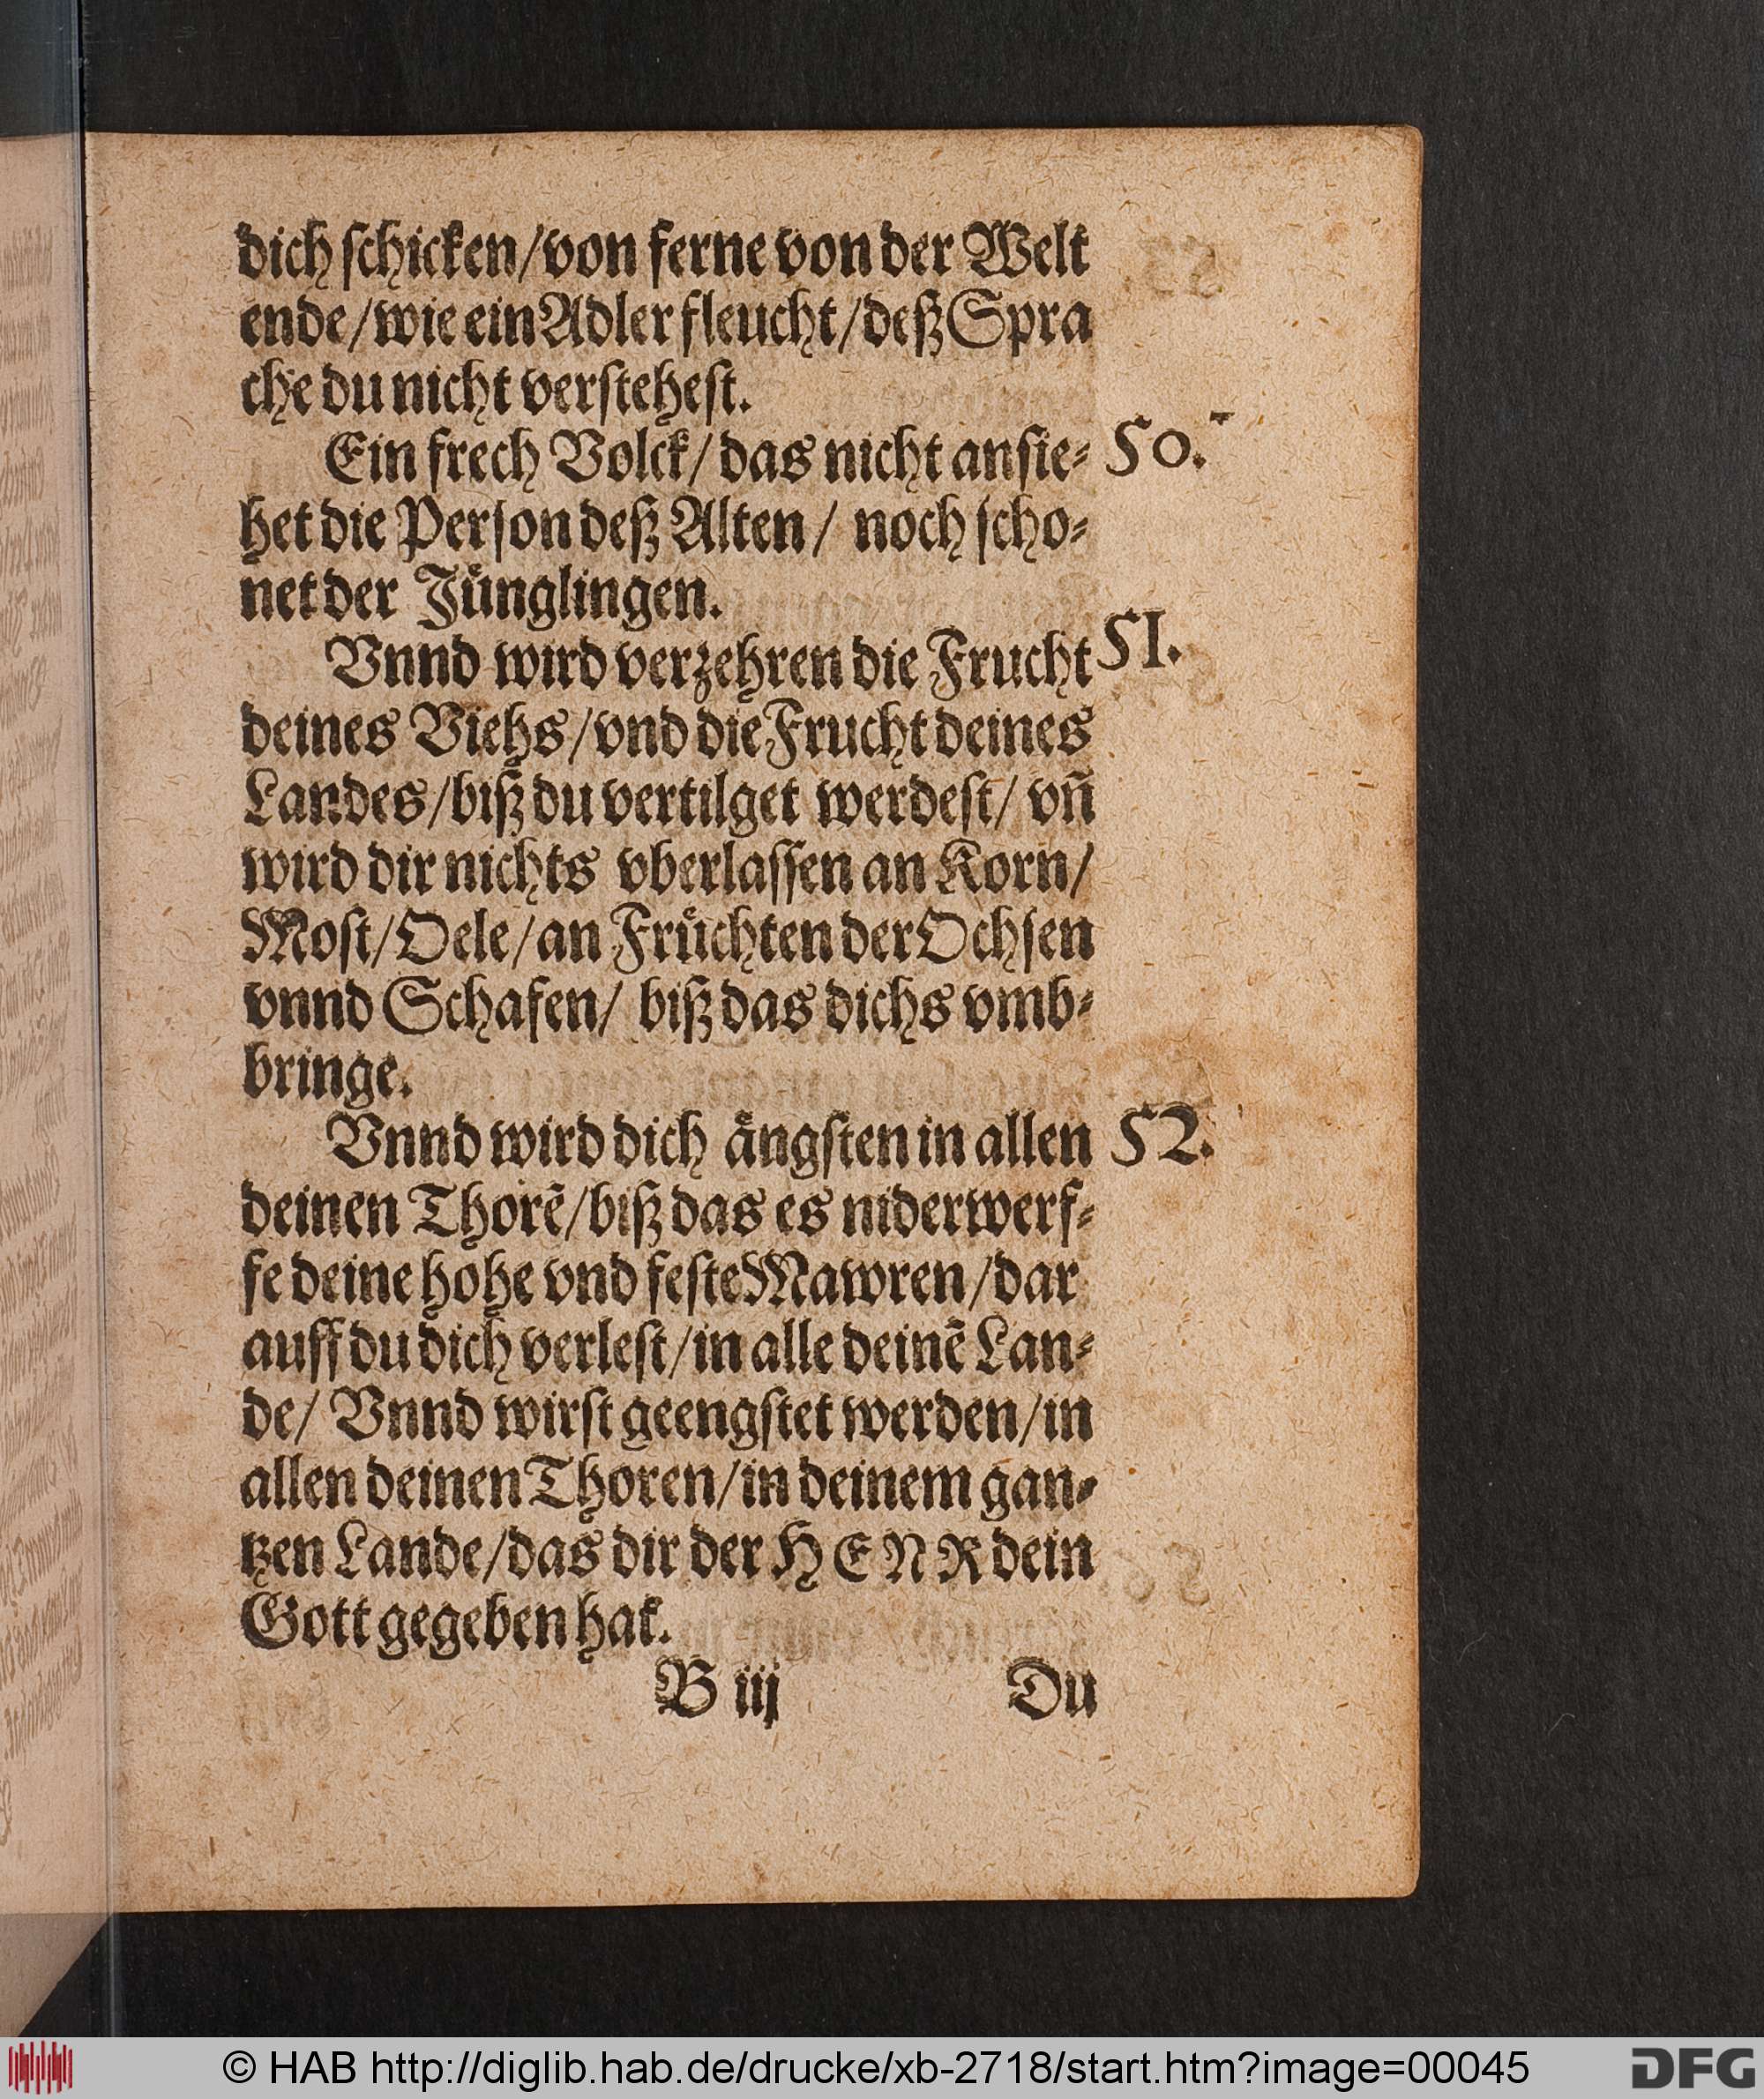 dich schicken/von ferne von der Welt
ende/wie ein Adler fleucht/deß Spra
che du nicht verstehest.
Ein frech Volck/das nicht ansie⸗ 50.
het die Person deß Alten/ noch scho⸗
net der Jünglingen.
Vnnd wird verzehren die Frucht 51.
deines Viehs/vnd die Frucht deines
Landes/biß du vertilget werdest/ vñ
wird dir nichts vberlassen an Korn/
Most/Oele/an Früchten der Ochsen
vnnd Schafen/ biß das dichs vmb⸗
bringe.
Vnnd wird dich ängsten in allen 52.
deinen Thorẽ/biß das es niderwerf⸗
fe deine hohe vnd feste Mawren/dar
auff du dich verlest/in alle deinẽ Lan⸗
de/ Vnnd wirst geengstet werden/in
allen deinen Thoren/in deinem gan⸗
tzen Lande/das dir der HENR dein
Gott gegeben hat.
B iij Du
© HAB http://diglib.hab.de/drucke/xb-2718/start.htm?image=00045
DFG